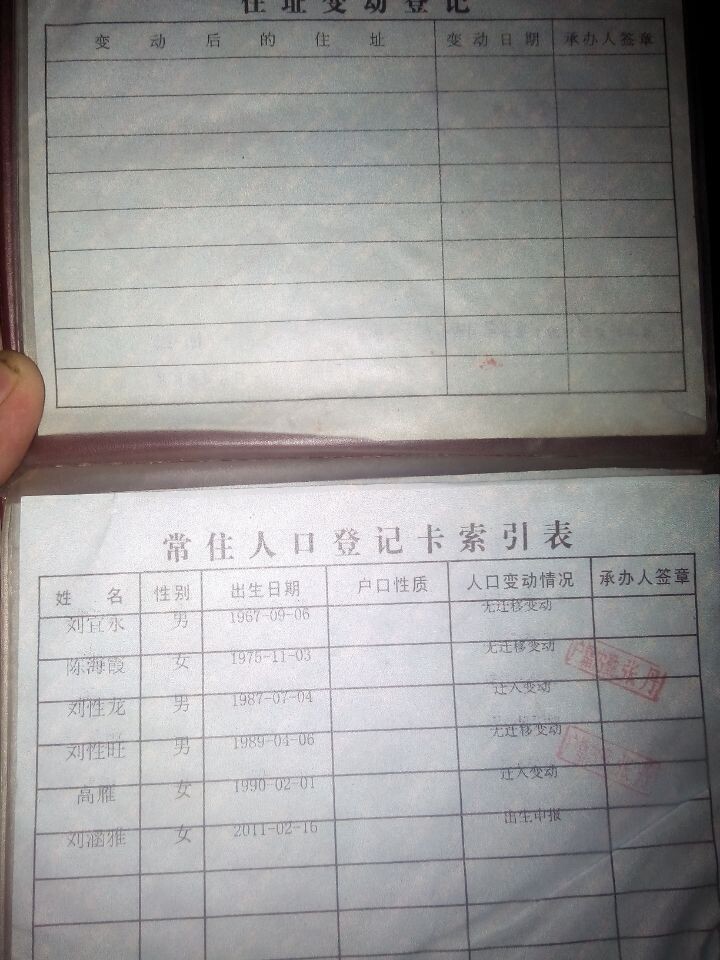 住址变动登记
变动后的住址 变动日期 承办人签章
常住人口登记卡索引表
姓名 性别 出生日期 户口性质 人口变动情况 承办人签章
刘宜永 男 1967-09-06 无迁移变动
陈海霞 女 1975-11-03 无迁移变动
刘性龙 男 1987-07-04 迁入变动
刘性旺 男 1989-04-06 无迁移变动
高雁 女 1990-02-01 迁入变动
刘涵雅 女 2011-02-16 出生申报